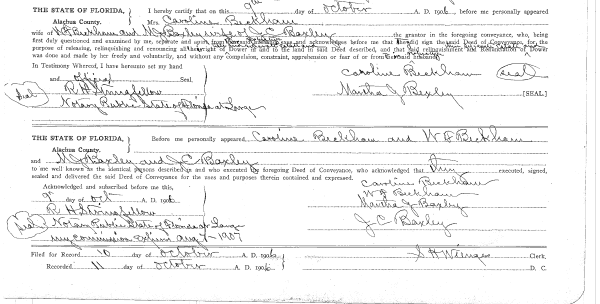 THE STATE OF FLORIDA, I hereby certify that on this 9th day of October A. D. 1906 before me personally appeared
Alachua County. Mrs Caroline Beckham
wife of W F Beckham and M J Baxley wife of J C Baxley the grantor in the foregoing conveyance, who, being
first duly questioned and examined by me, separate and apart from said husband and acknowledges before me that she did sign the said Deed of Conveyance, for the
purpose of releasing, relinquishing and renouncing all her right of Dower in the land in said Deed described, and that said relinquishment and Renunciation of Dower
was done and made by her freely and voluntarily, and without any compulsion, constraint, apprehension or fear of or from husband
In Testimony Whereof, I have hereunto set my hand
and official Seal. Caroline Beckham seal
seal R H Stringfellow Martha J Baxley [SEAL]
Notary Public State of Florida at Large
THE STATE OF FLORIDA, Before me personally appeared Caroline Beckham and W F Beckham
Alachua County.
and M J Baxley and J C Baxley
to me well known as the identical persons described in and who executed the foregoing Deed of Conveyance, who acknowledged that they executed, signed,
sealed and delivered the said Deed of Conveyance for the uses and purposes therein contained and expressed.
Acknowledged and subscribed before me this, Caroline Beckham
9th day of Oct A. D. 1906 W F Beckham
R H Stringfellow Martha J Baxley
seal Notary Public State of Florida at Large J C Baxley
my commission expires Aug 7-1907
Filed for Record 10 day of October A. D. 1906 S H Wienges Clerk,
Recorded 11 day of October A. D. 1906 D. C.